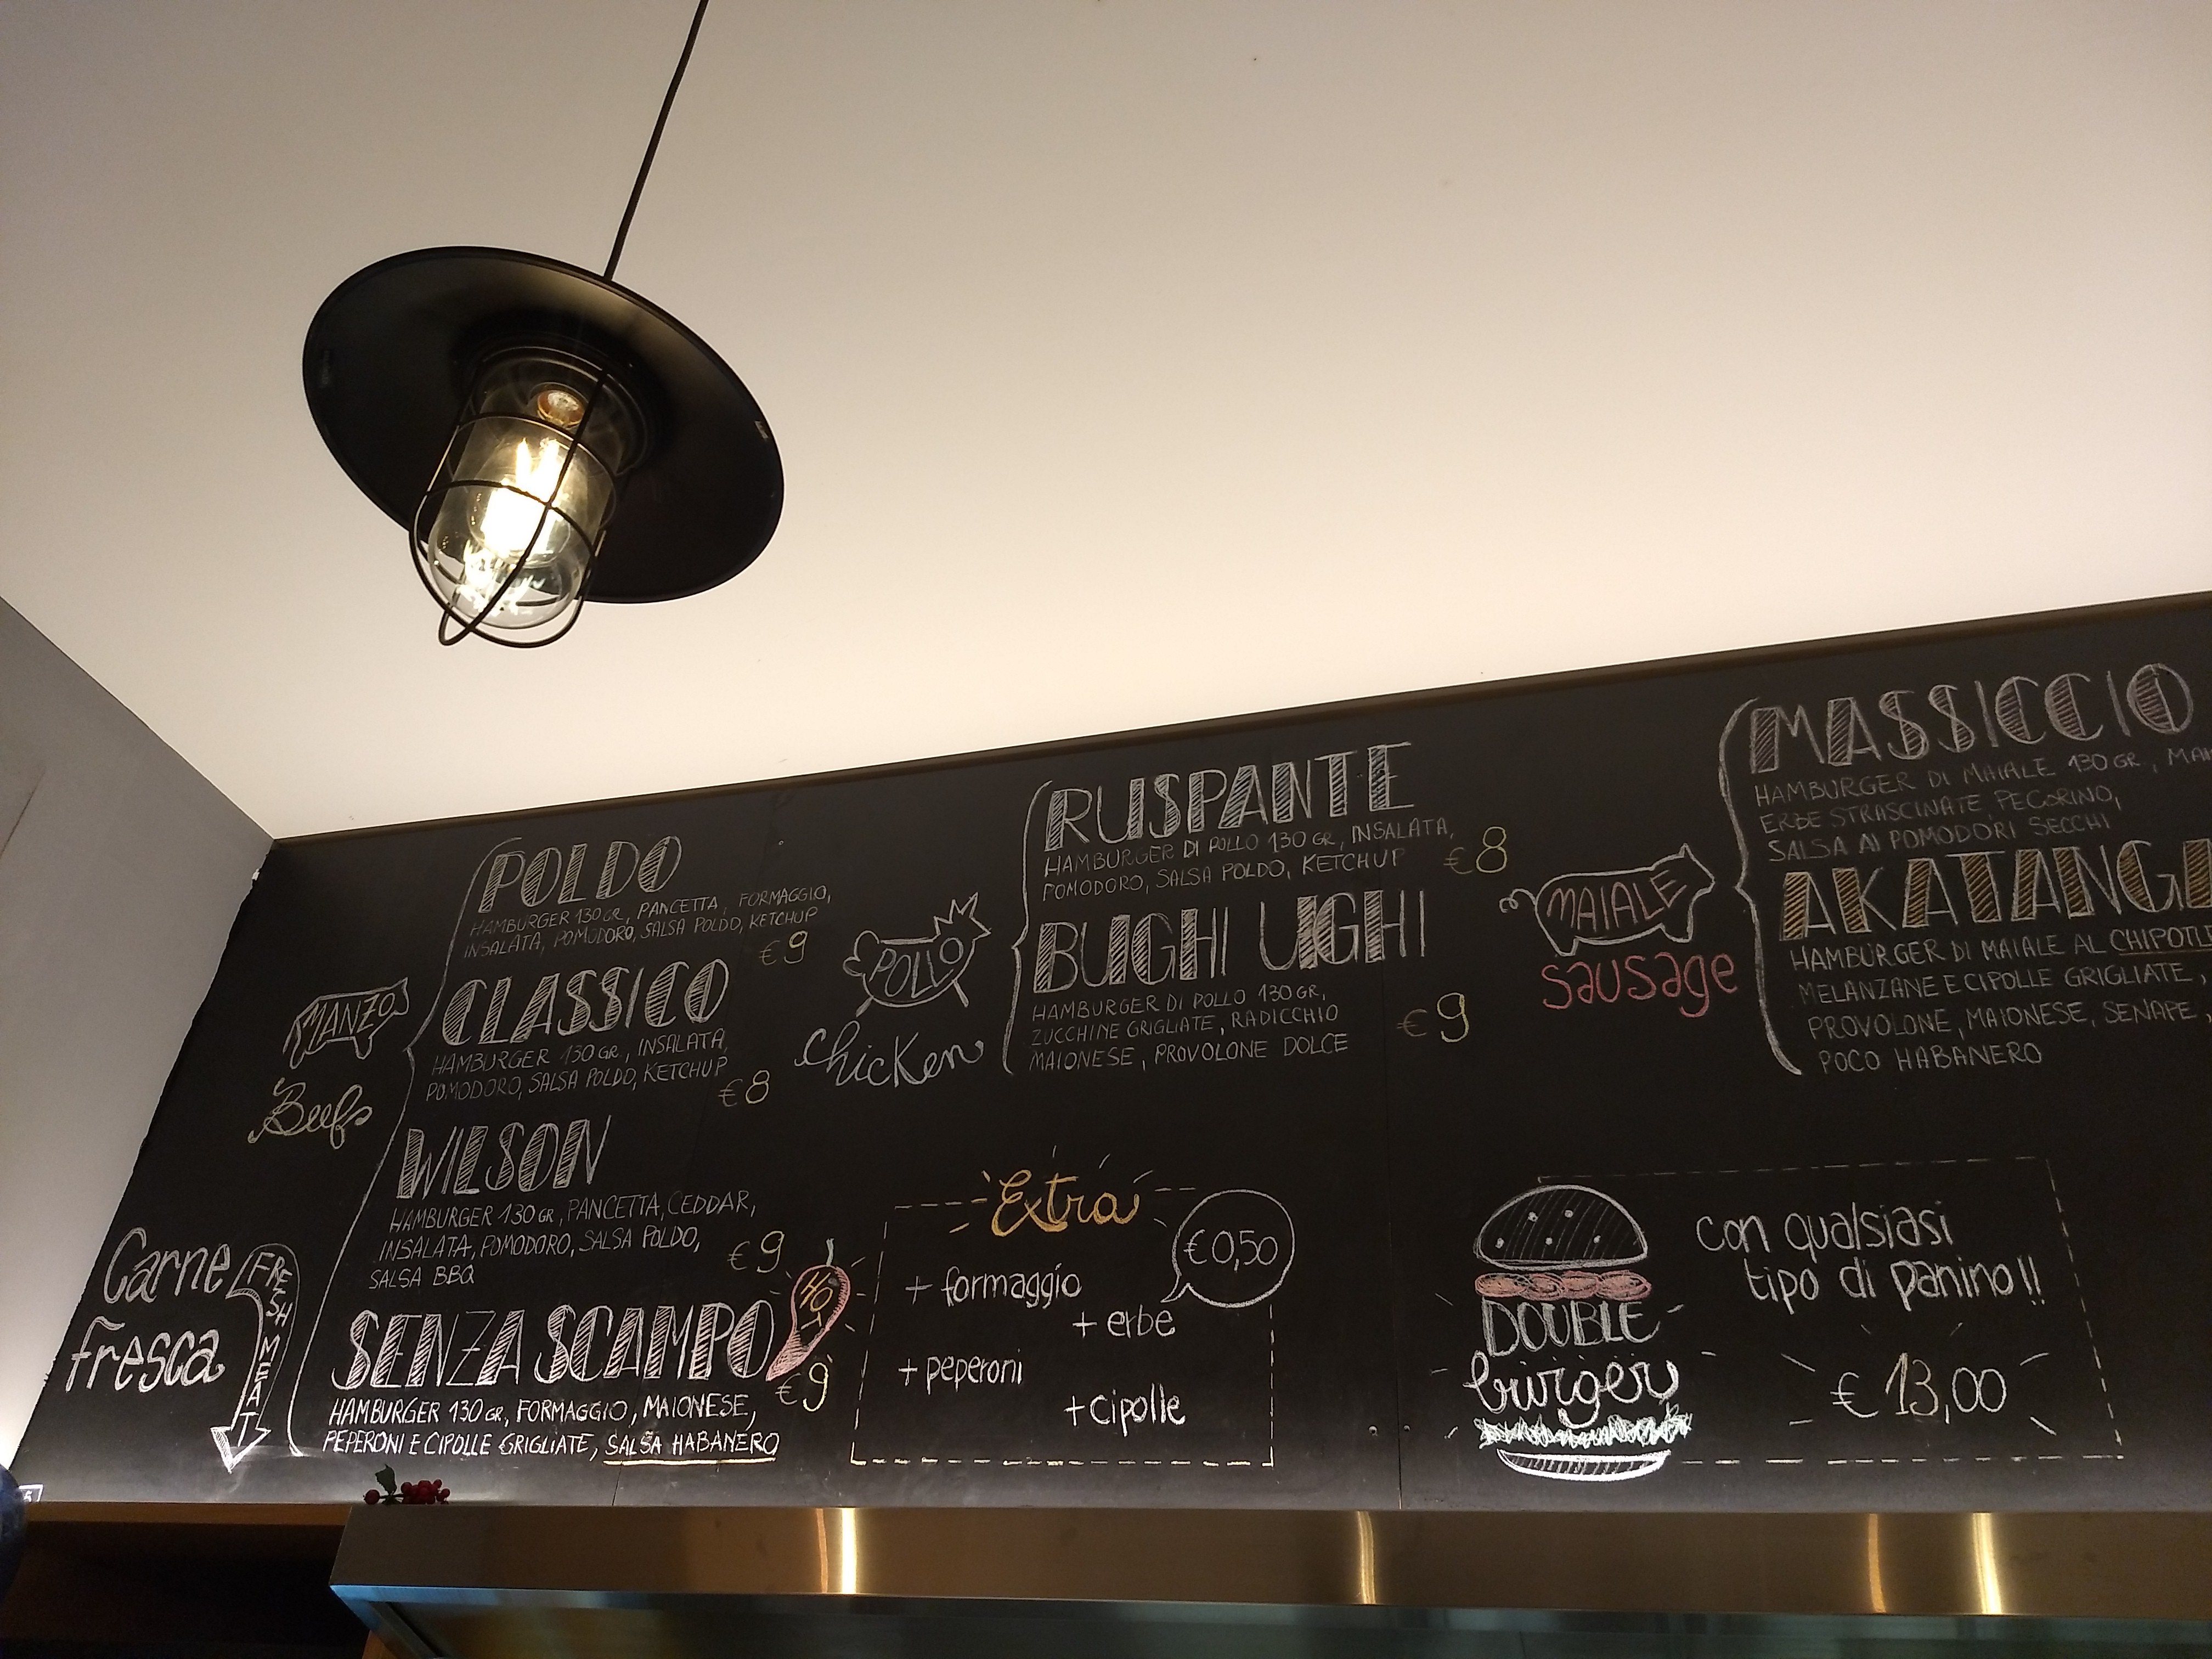 MANZO
Beef
POLDO
HAMBURGER 130 GR, PANCETTA, FORMAGGIO,
INSALATA, POMODORO, SALSA POLDO, KETCHUP
€9
CLASSICO
HAMBURGER 130 GR, INSALATA,
POMODORO, SALSA POLDO, KETCHUP
€8
WILSON
HAMBURGER 130 GR, PANCETTA, CEDDAR,
INSALATA, POMODORO, SALSA POLDO,
SALSA BBQ
€9
SENZA SCAMPO
HOT
€9
HAMBURGER 130 GR, FORMAGGIO, MAIONESE,
PEPERONI E CIPOLLE GRIGLIATE, SALSA HABANERO
Carne
fresca
FRESH MEAT
POLLO
chicken
RUSPANTE
HAMBURGER DI POLLO 130 GR, INSALATA,
POMODORO, SALSA POLDO, KETCHUP
€8
BUGHI UGHI
HAMBURGER DI POLLO 130 GR,
ZUCCHINE GRIGLIATE, RADICCHIO
MAIONESE, PROVOLONE DOLCE
€9
Extra
€0,50
+ formaggio
+ erbe
+ peperoni
+ cipolle
MAIALE
sausage
MASSICCIO
HAMBURGER DI MAIALE 130 GR,
ERBE STRASCINATE, PECORINO,
SALSA AI POMODORI SECCHI
AKATANGA
HAMBURGER DI MAIALE AL
MELANZANE E CIPOLLE GRIGLIATE,
PROVOLONE, MAIONESE, SENAPE,
POCO HABANERO
DOUBLE
burger
con qualsiasi
tipo di panino!!
€ 13,00